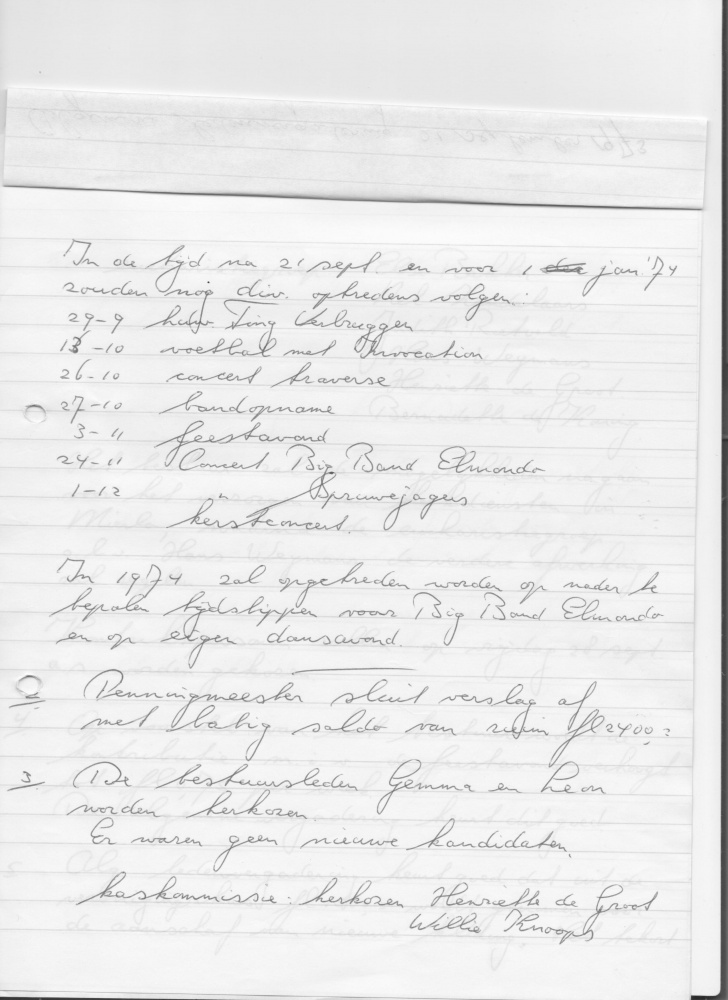 In de tijd na 21 sept. en voor 1 jan '74
zouden nog div. optredens volgen:
29-9 huw. Tiny Verbruggen
13-10 voetbal met Invocation
26-10 concert traverse
27-10 bandopname
3-11 feestavond
24-11 Concert Big Band Elmondo
1-12 " Spruwejagers
kerstconcert.
In 1974 zal opgetreden worden op nader te
bepalen tijdstippen voor Big Band Elmondo
en op eigen dansavond.
2 Penningmeester sluit verslag af
met batig saldo van ruim fl 2400,=
3 De bestuursleden Gemma en Leon
worden herkozen.
Er waren geen nieuwe kandidaten.
kaskommissie: herkozen Henriette de Groot
Willie Knoops